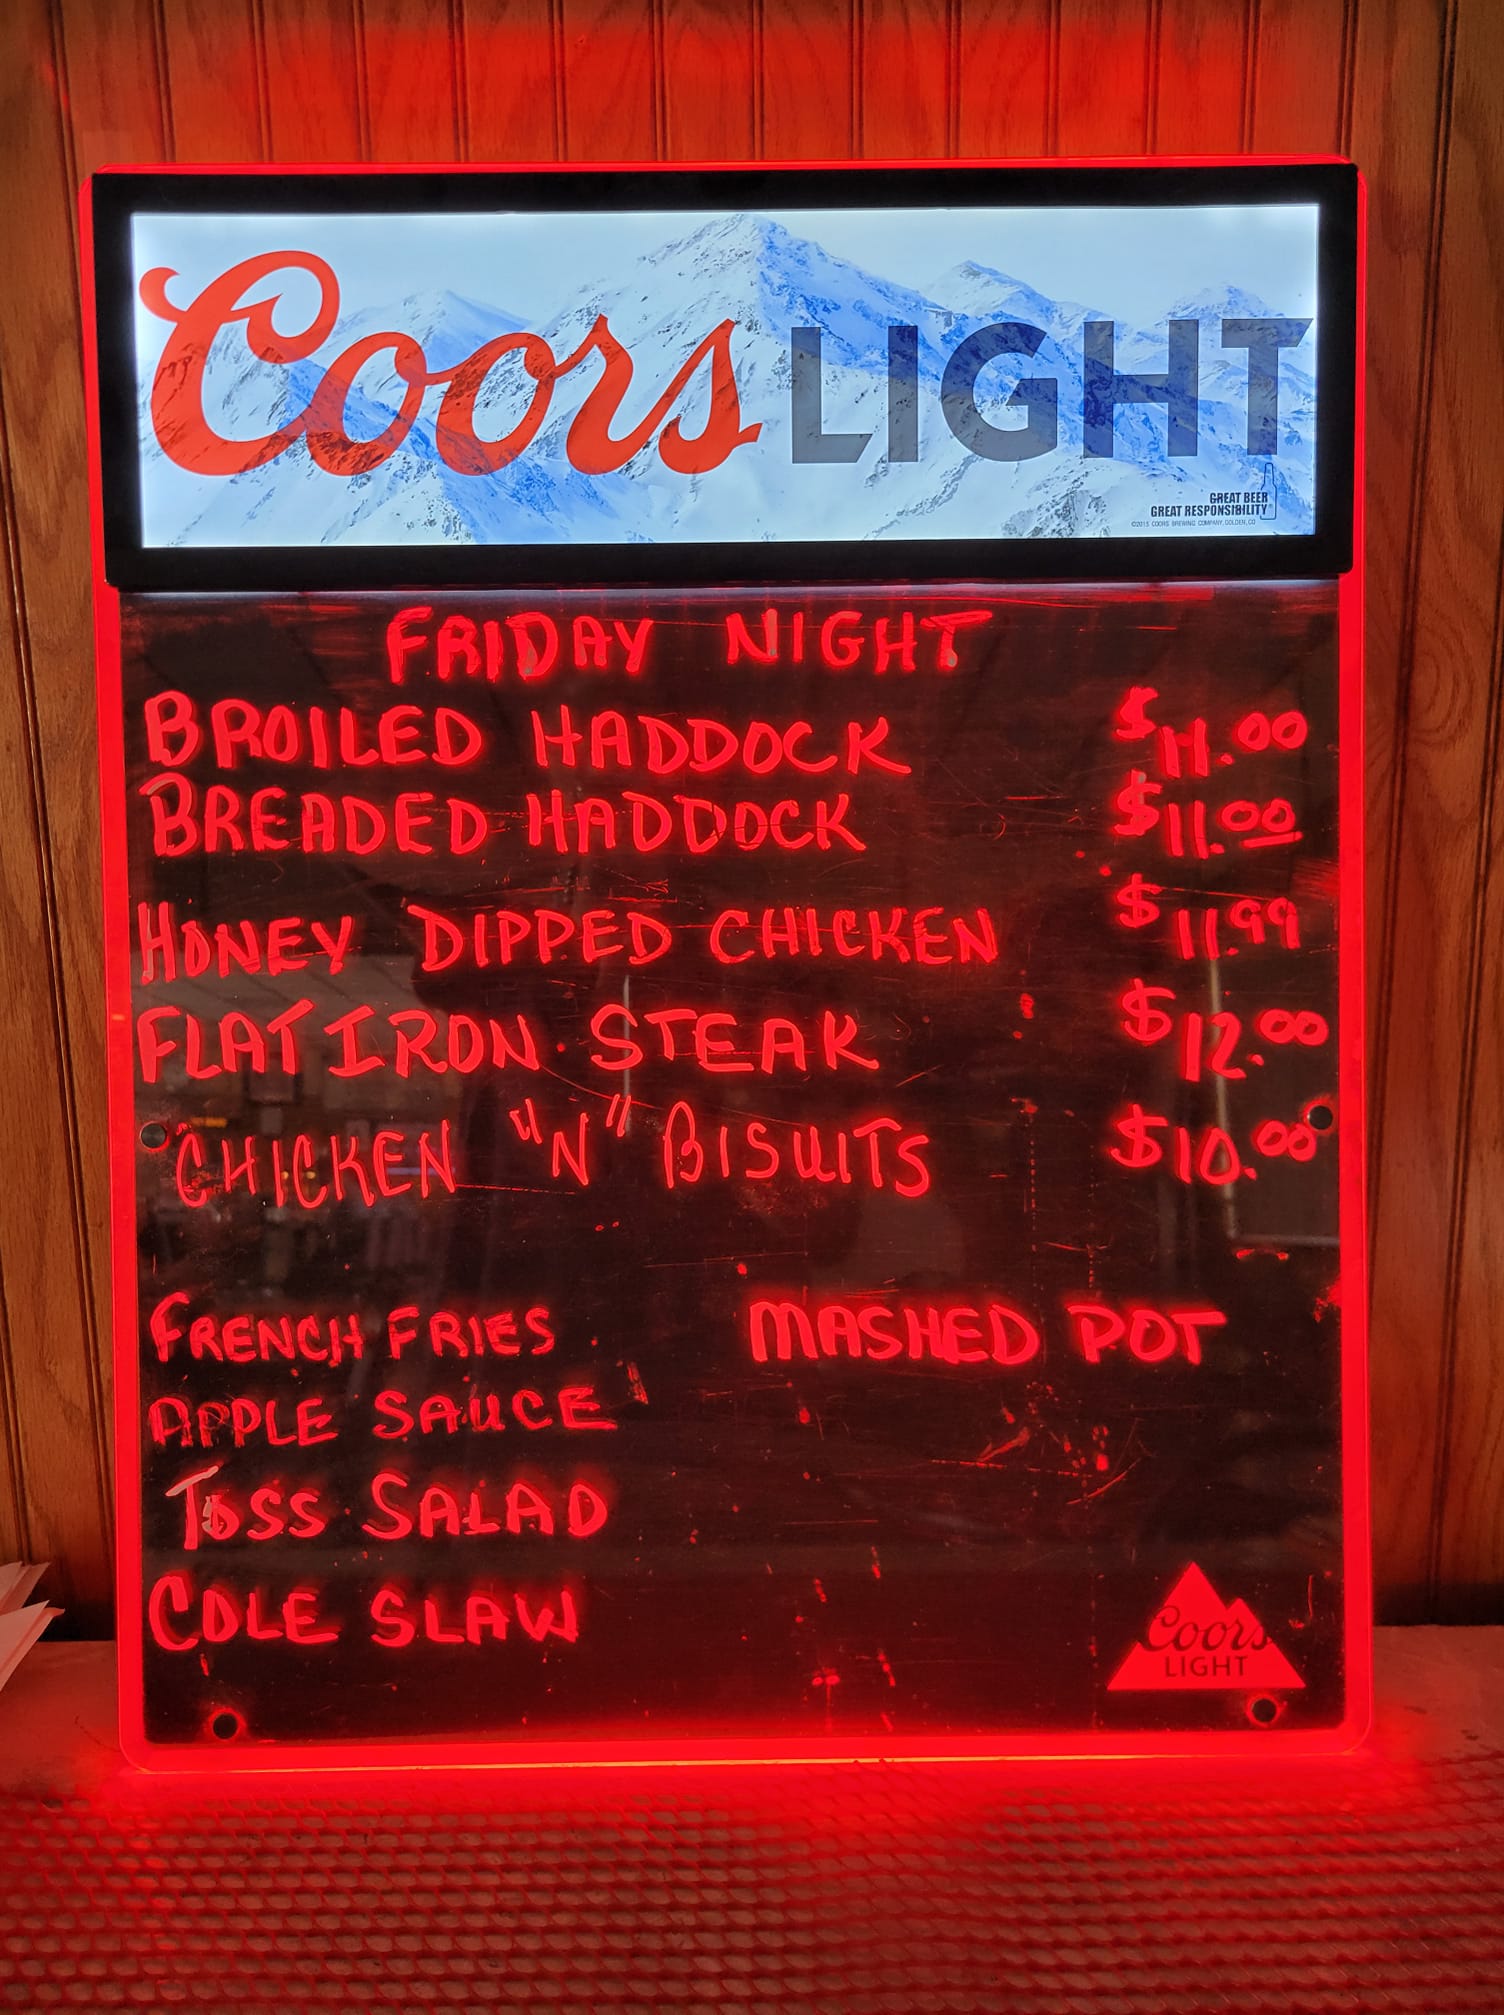 Coors LIGHT
GREAT BEER
GREAT RESPONSIBILITY®
©2015 COORS BREWING COMPANY, GOLDEN, CO
FRIDAY NIGHT
BROILED HADDOCK $11.00
BREADED HADDOCK $11.00
HONEY DIPPED CHICKEN $11.99
FLAT IRON STEAK $12.00
CHICKEN "N" BISUITS $10.00
FRENCH FRIES MASHED POT
APPLE SAUCE
TOSS SALAD
COLE SLAW
Coors
LIGHT